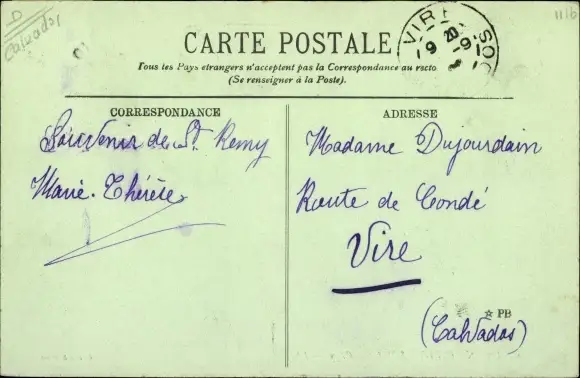 D
Calvados
1116
CARTE POSTALE
Tous les Pays étrangers n'acceptent pas la Correspondance au recto
(Se renseigner à la Poste).
VIRE
9 20
-9
CORRESPONDANCE
Souvenir de St. Remy
Marie-Thérèse
ADRESSE
Madame Dujourdain
Route de Condé
Vire
(Calvados)
☆ PB